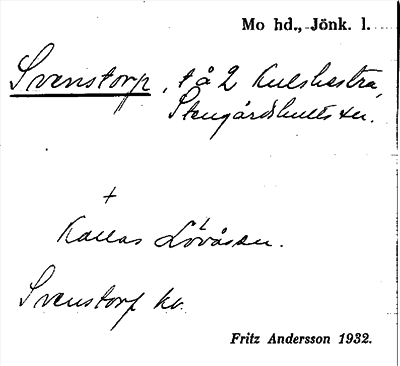 Mo hd., Jönk. l.
Svenstorp, t å 2 Kulshestra,
Stengårdshults sn.
+
Kallas Lövåsen.
Svenstorp kv.
Fritz Andersson 1932.